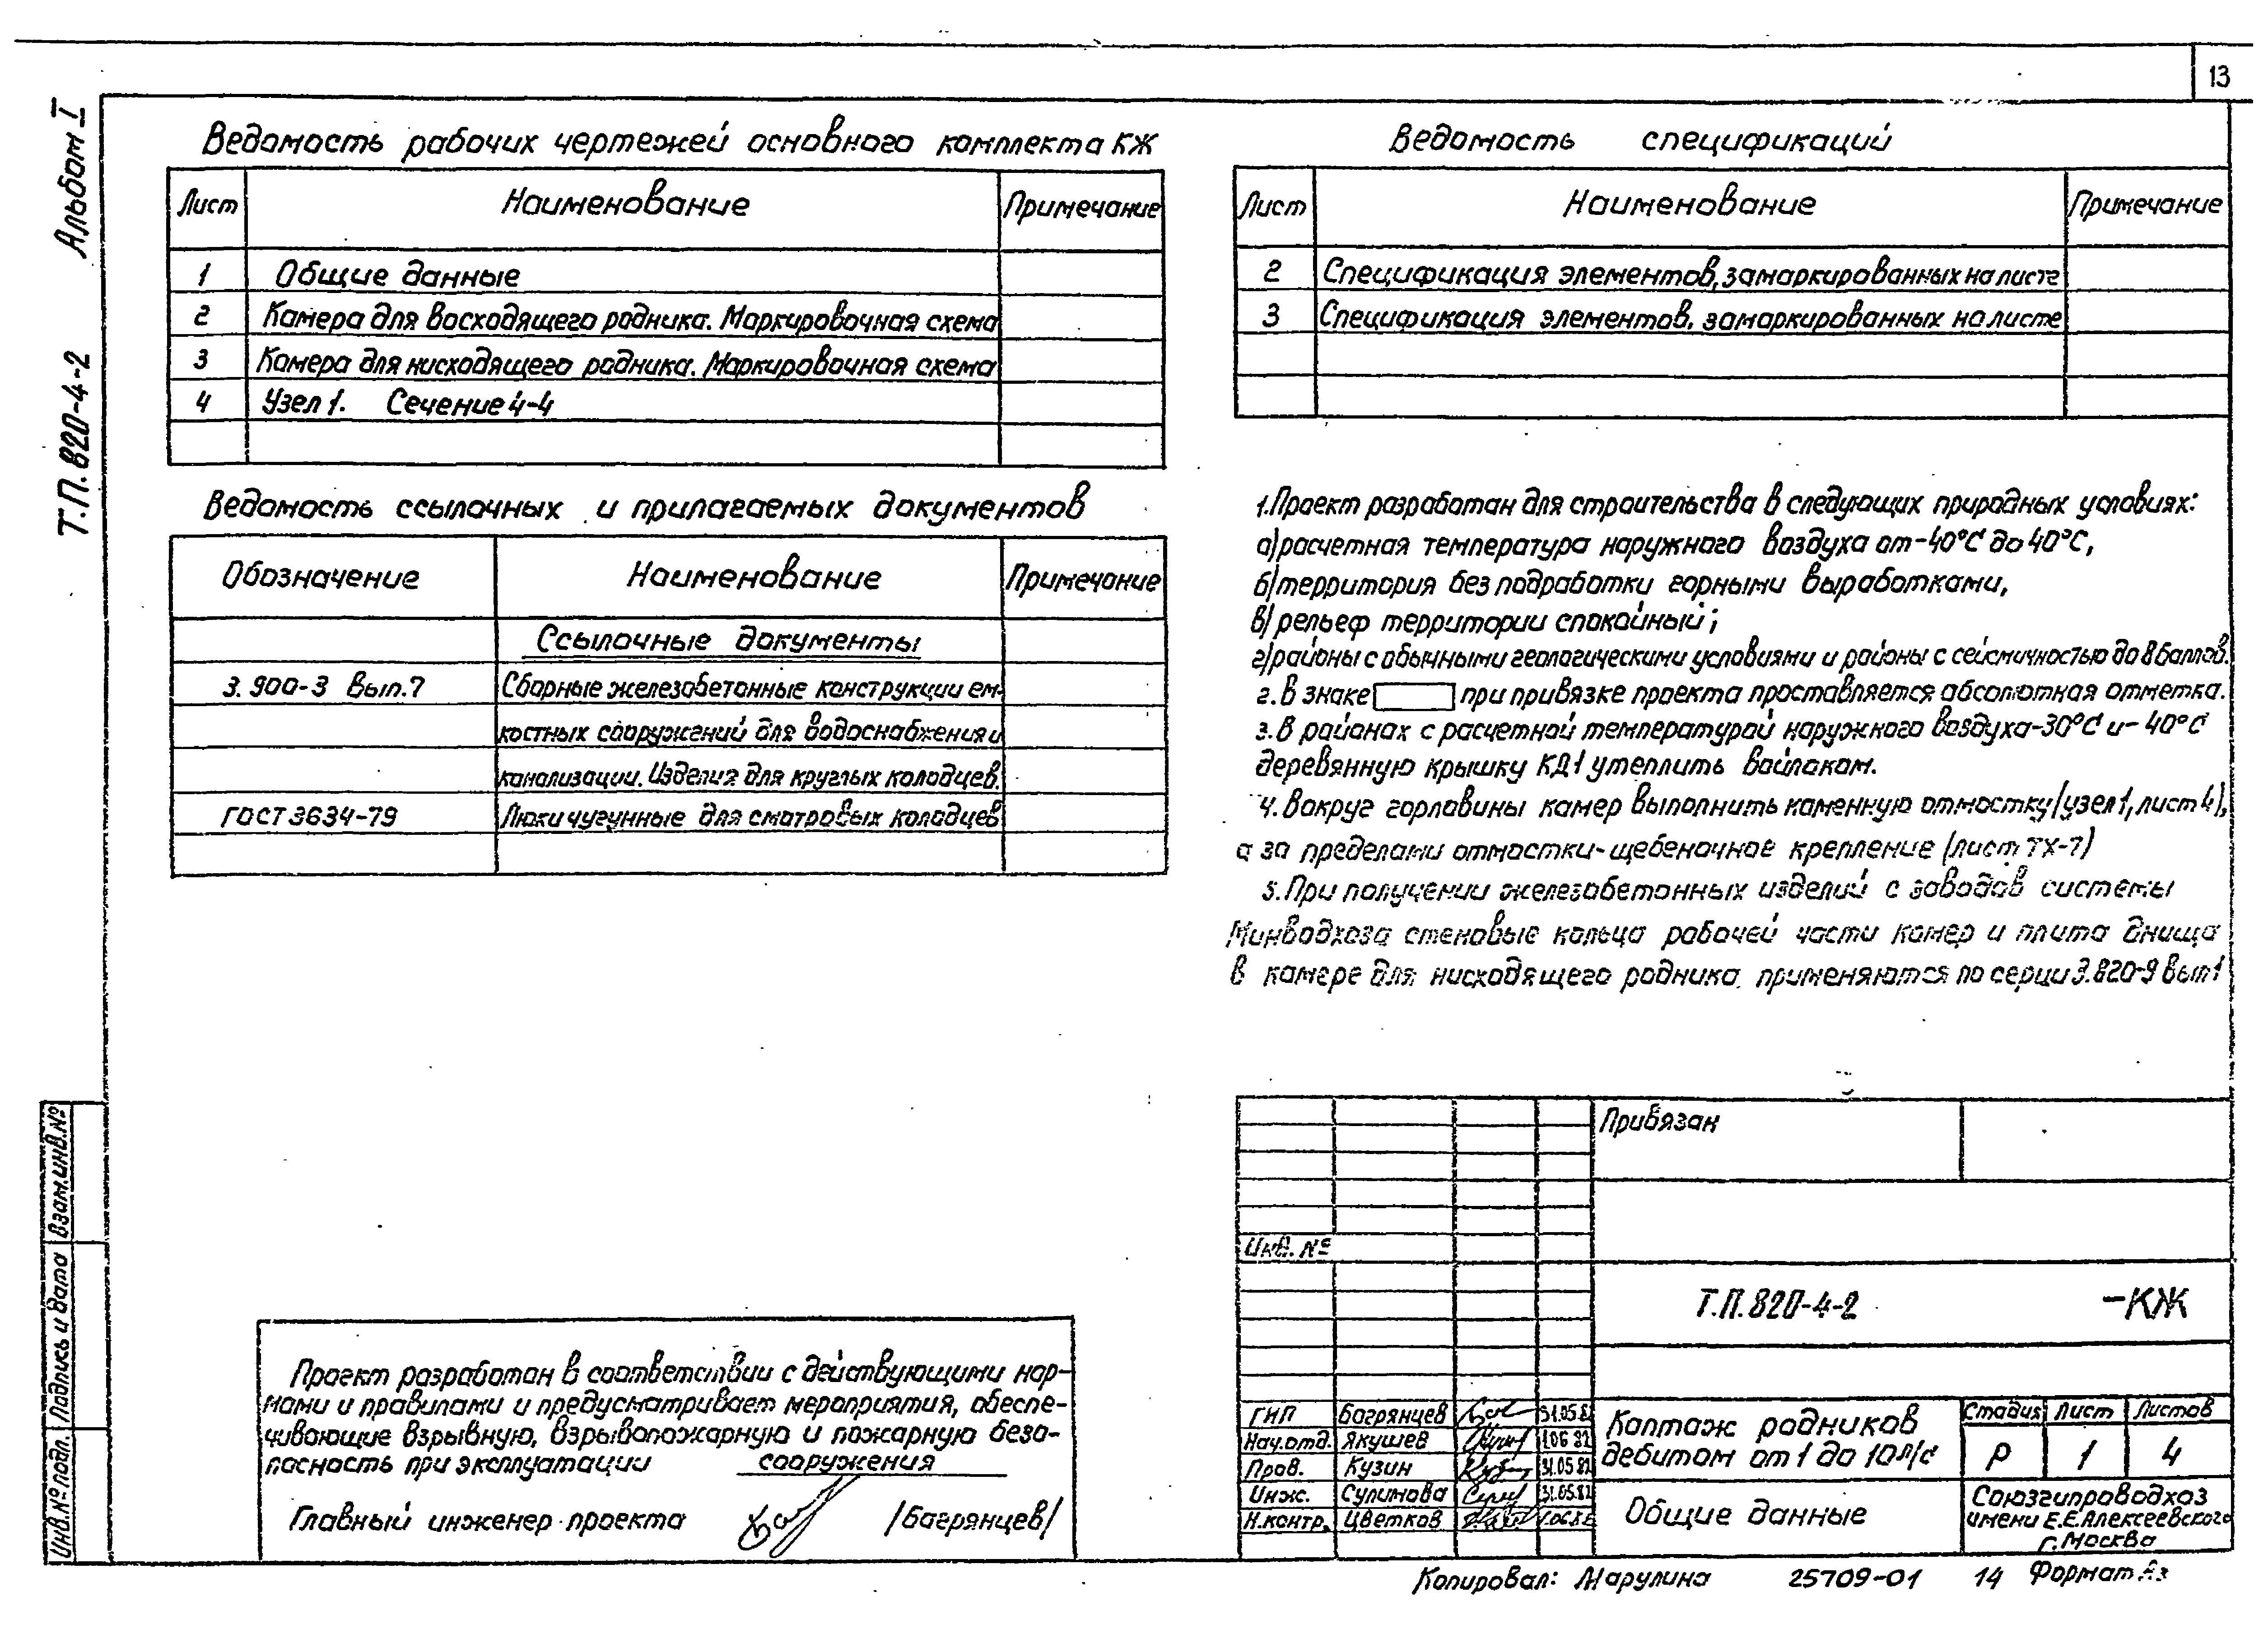 13
Альбом I
Т.П. 820-4-2
Ведомость рабочих чертежей основного комплекта КЖ
Лист Наименование Примечание
1 Общие данные
2 Камера для восходящего родника. Маркировочная схема
3 Камера для нисходящего родника. Маркировочная схема
4 Узел 1. Сечение 4-4
Ведомость ссылочных и прилагаемых документов
Обозначение Наименование Примечание
Ссылочные документы
3.900-3 Вып.7 Сборные железобетонные конструкции ем-
костных сооружений для водоснабжения и
канализации. Изделия для круглых колодцев.
ГОСТ 3634-79 Люки чугунные для смотровых колодцев
Ведомость спецификаций
Лист Наименование Примечание
2 Спецификация элементов, замаркированных на листе
3 Спецификация элементов, замаркированных на листе
1. Проект разработан для строительства в следующих природных условиях:
а) расчетная температура наружного воздуха от -40°С до 40°С,
б) территория без подработки горными выработками,
в) рельеф территории спокойный;
г) районы с обычными геологическими условиями и районы с сейсмичностью до 8 баллов.
2. В знаке при привязке проекта проставляется абсолютная отметка.
3. В районах с расчетной температурой наружного воздуха -30°С и -40°С
деревянную крышку КД1 утеплить войлоком.
4. Вокруг горловины камер выполнить каменную отмостку (узел 1, лист 4),
а за пределами отмостки - щебеночное крепление (лист ТХ-7)
5. При получении железобетонных изделий с заводов системы
Минводхоза стеновые кольца рабочей части камер и плита днища
в камере для нисходящего родника применяются по серии 3.820-9 Вып 1
Взам.инв.№
Подпись и дата
Инв.№ подл.
Проект разработан в соответствии с действующими нор-
мами и правилами и предусматривает мероприятия, обеспе-
чивающие взрывную, взрывопожарную и пожарную безо-
пасность при эксплуатации сооружения
Главный инженер проекта /Багрянцев/
Привязан
Инв. №
Т.П. 820-4-2 -КЖ
ГИП Багрянцев 31.05.82
Нач.отд. Якушев 1.06 82
Пров. Кузин 31.05.82
Инж. Сулимова 31.05.82
Н.контр. Цветков
Каптаж родников
дебитом от 1 до 10 л/с
Стадия Лист Листов
Р 1 4
Общие данные
Союзгипроводхоз
имени Е.Е.Алексеевского
г.Москва
Копировал: Марулина 25709-01 14 Формат А3